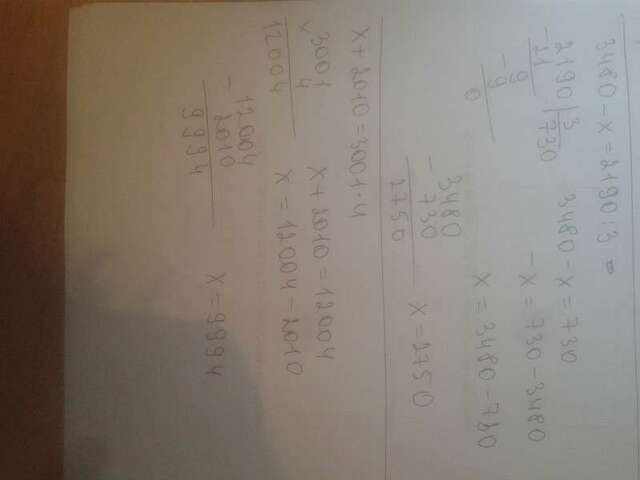 3480 - x = 2190 : 3
2190 | 3
- 21 730
9
- 9
0
3480 - x = 730
- x = 730 - 3480
x = 3480 - 730
- 3480
730
2750
x = 2750
x + 2010 = 3001 · 4
3001
x 4
12004
x + 2010 = 12004
x = 12004 - 2010
- 12004
2010
9994
x = 9994